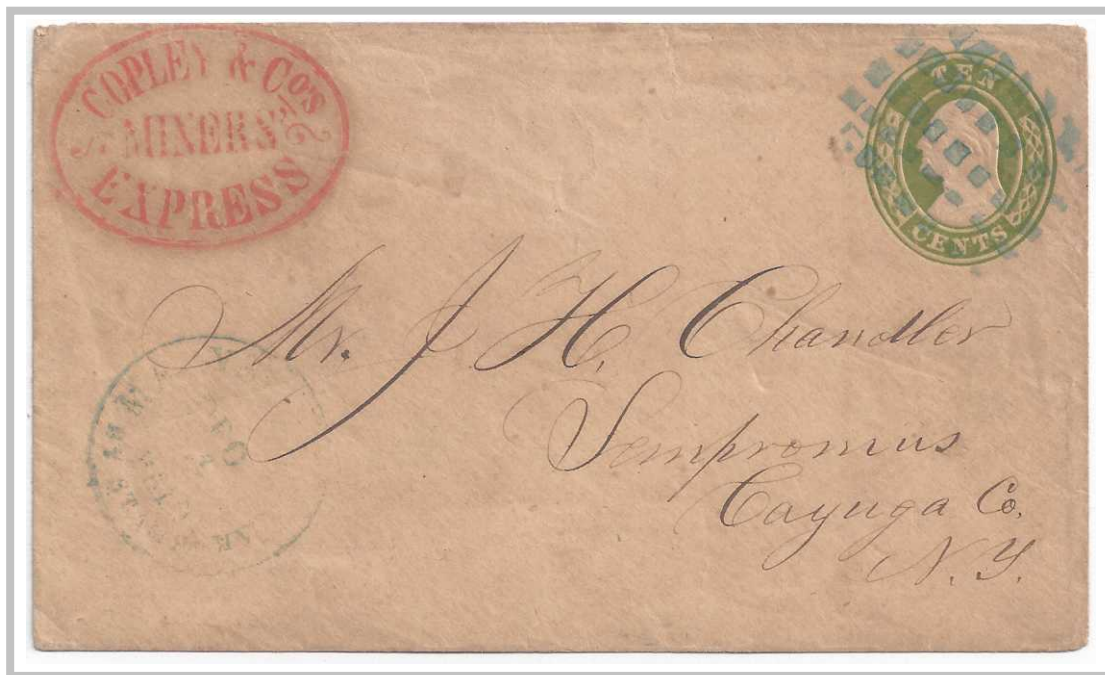 COPLEY & Co's
MINERS'
EXPRESS
TEN
CENTS
Mr. J H. Chandler
Sempronius
Cayuga Co.
N. Y.